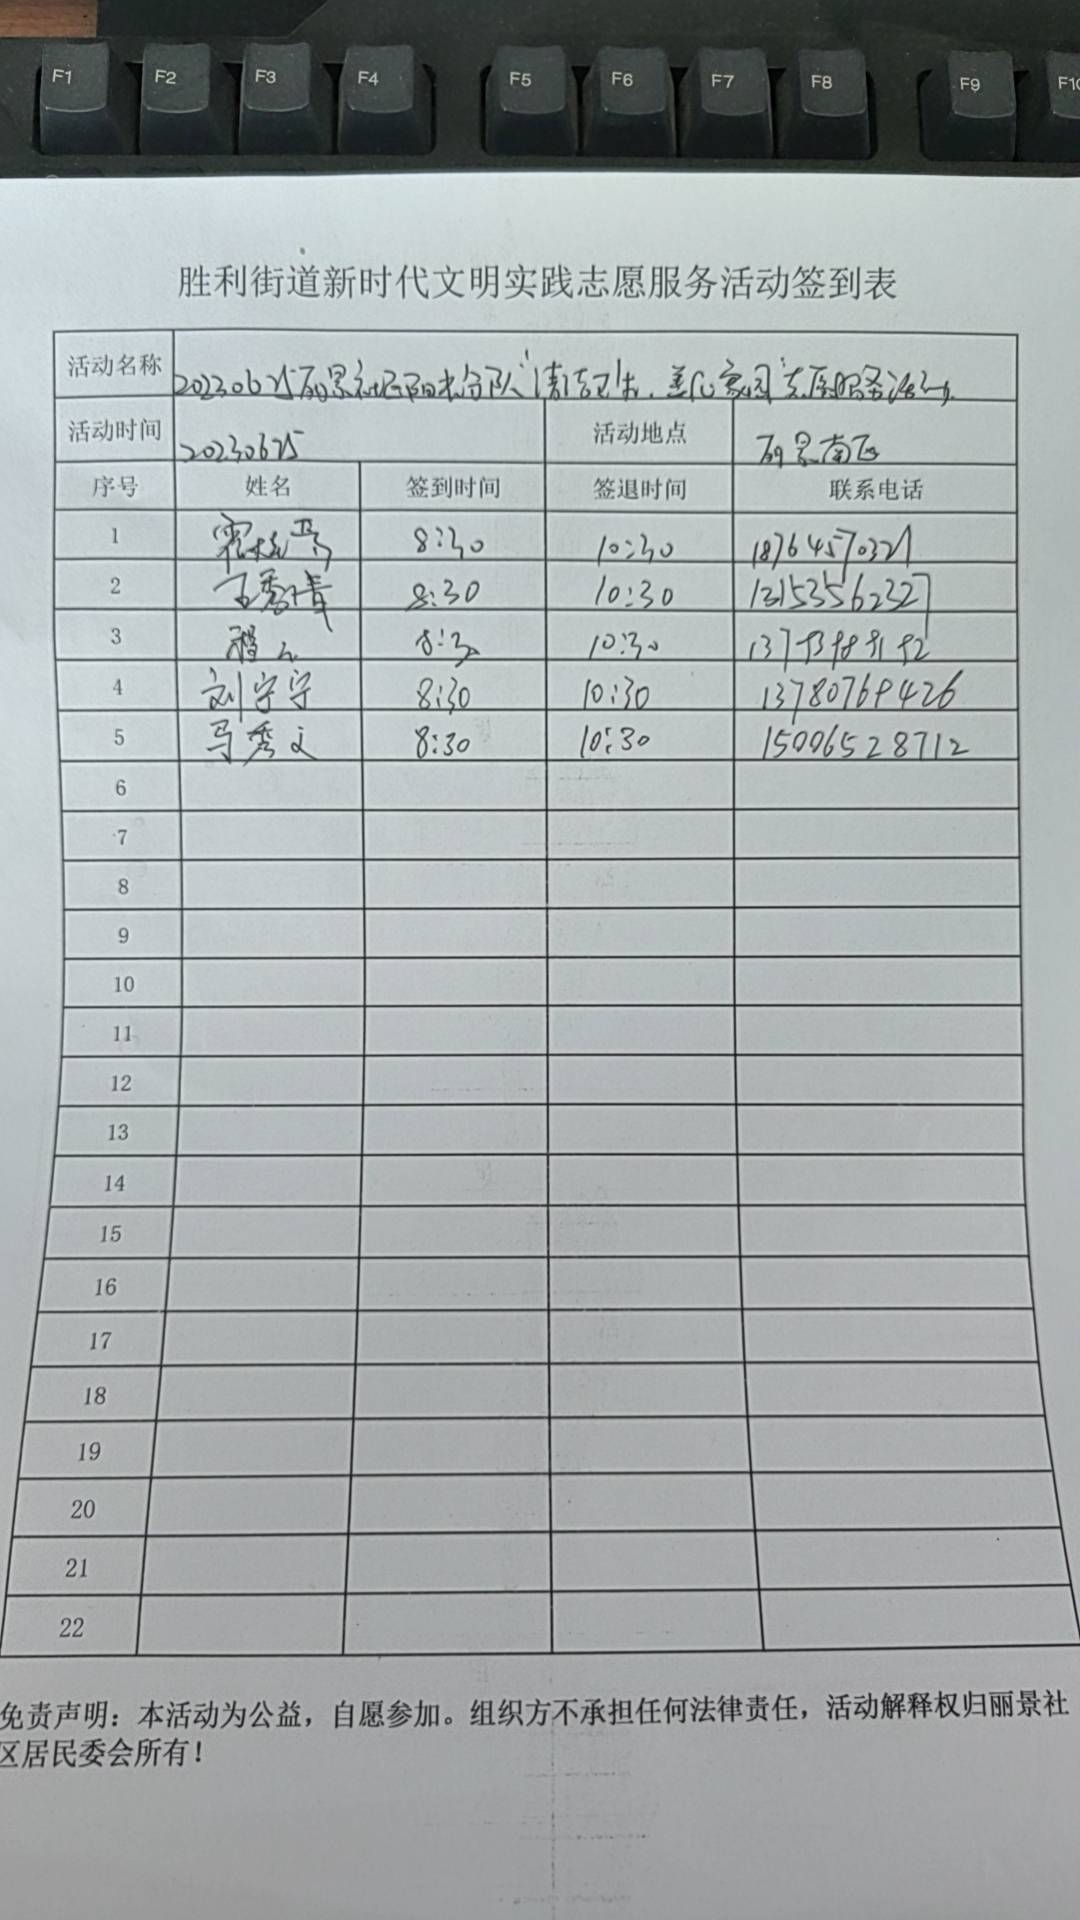 F1 F2 F3 F4 F5 F6 F7 F8 F9 F10
胜利街道新时代文明实践志愿服务活动签到表
活动名称 20230625丽景社区阳光分队“清洁卫生、美化家园”志愿服务活动
活动时间 20230625 活动地点 丽景南区
序号 姓名 签到时间 签退时间 联系电话
1 8:30 10:30 18764570321
2 王秀清 8:30 10:30 131535562327
3 8:30 10:30
4 刘宁宁 8:30 10:30 13780769426
5 马秀文 8:30 10:30 15006528712
6
7
8
9
10
11
12
13
14
15
16
17
18
19
20
21
22
免责声明：本活动为公益，自愿参加。组织方不承担任何法律责任，活动解释权归丽景社
区居民委会所有！